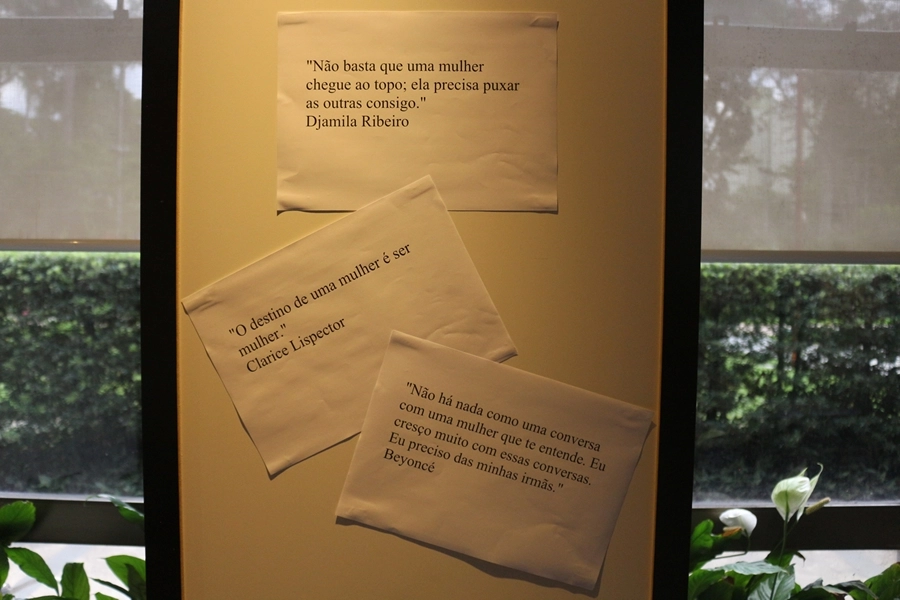 "Não basta que uma mulher
chegue ao topo; ela precisa puxar
as outras consigo."
Djamila Ribeiro
"O destino de uma mulher é ser
mulher."
Clarice Lispector
"Não há nada como uma conversa
com uma mulher que te entende. Eu
cresço muito com essas conversas.
Eu preciso das minhas irmãs."
Beyoncé